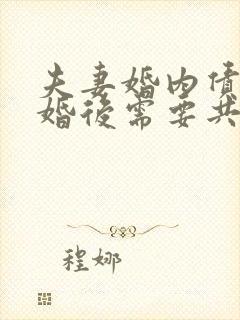 夫妻婚内债
婚後需要共
程娜